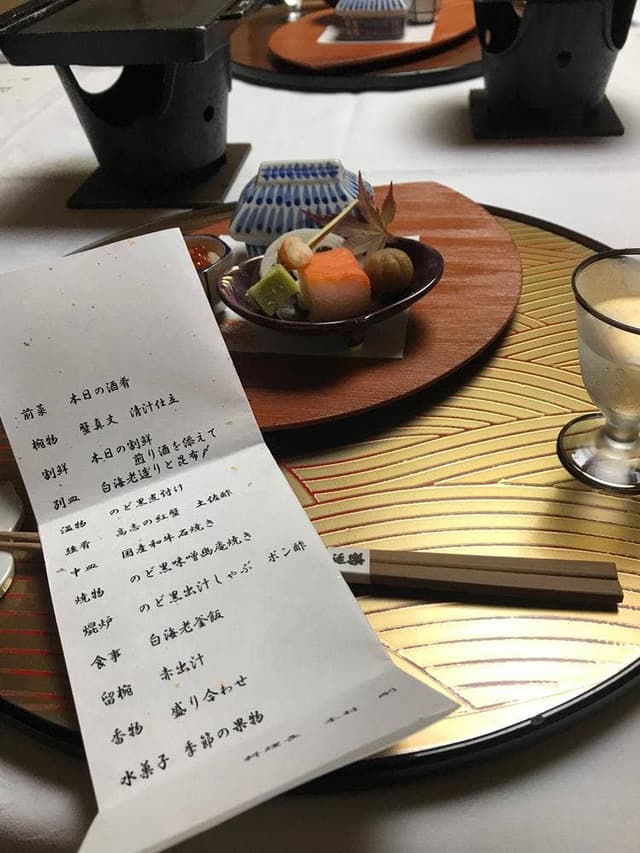 前菜 本日の酒肴
椀物 蟹真丈 清汁仕立
割鮮 本日の割鮮
煎り酒を添えて
別皿 白海老造りと昆布〆
温物 のど黒煮付け
強肴 高志の紅蟹 土佐酢
中皿 国産和牛石焼き
焼物 のど黒味噌幽庵焼き
焜炉 のど黒出汁しゃぶ ポン酢
食事 白海老釜飯
留椀 赤出汁
香物 盛り合わせ
水菓子 季節の果物
料理長 木村